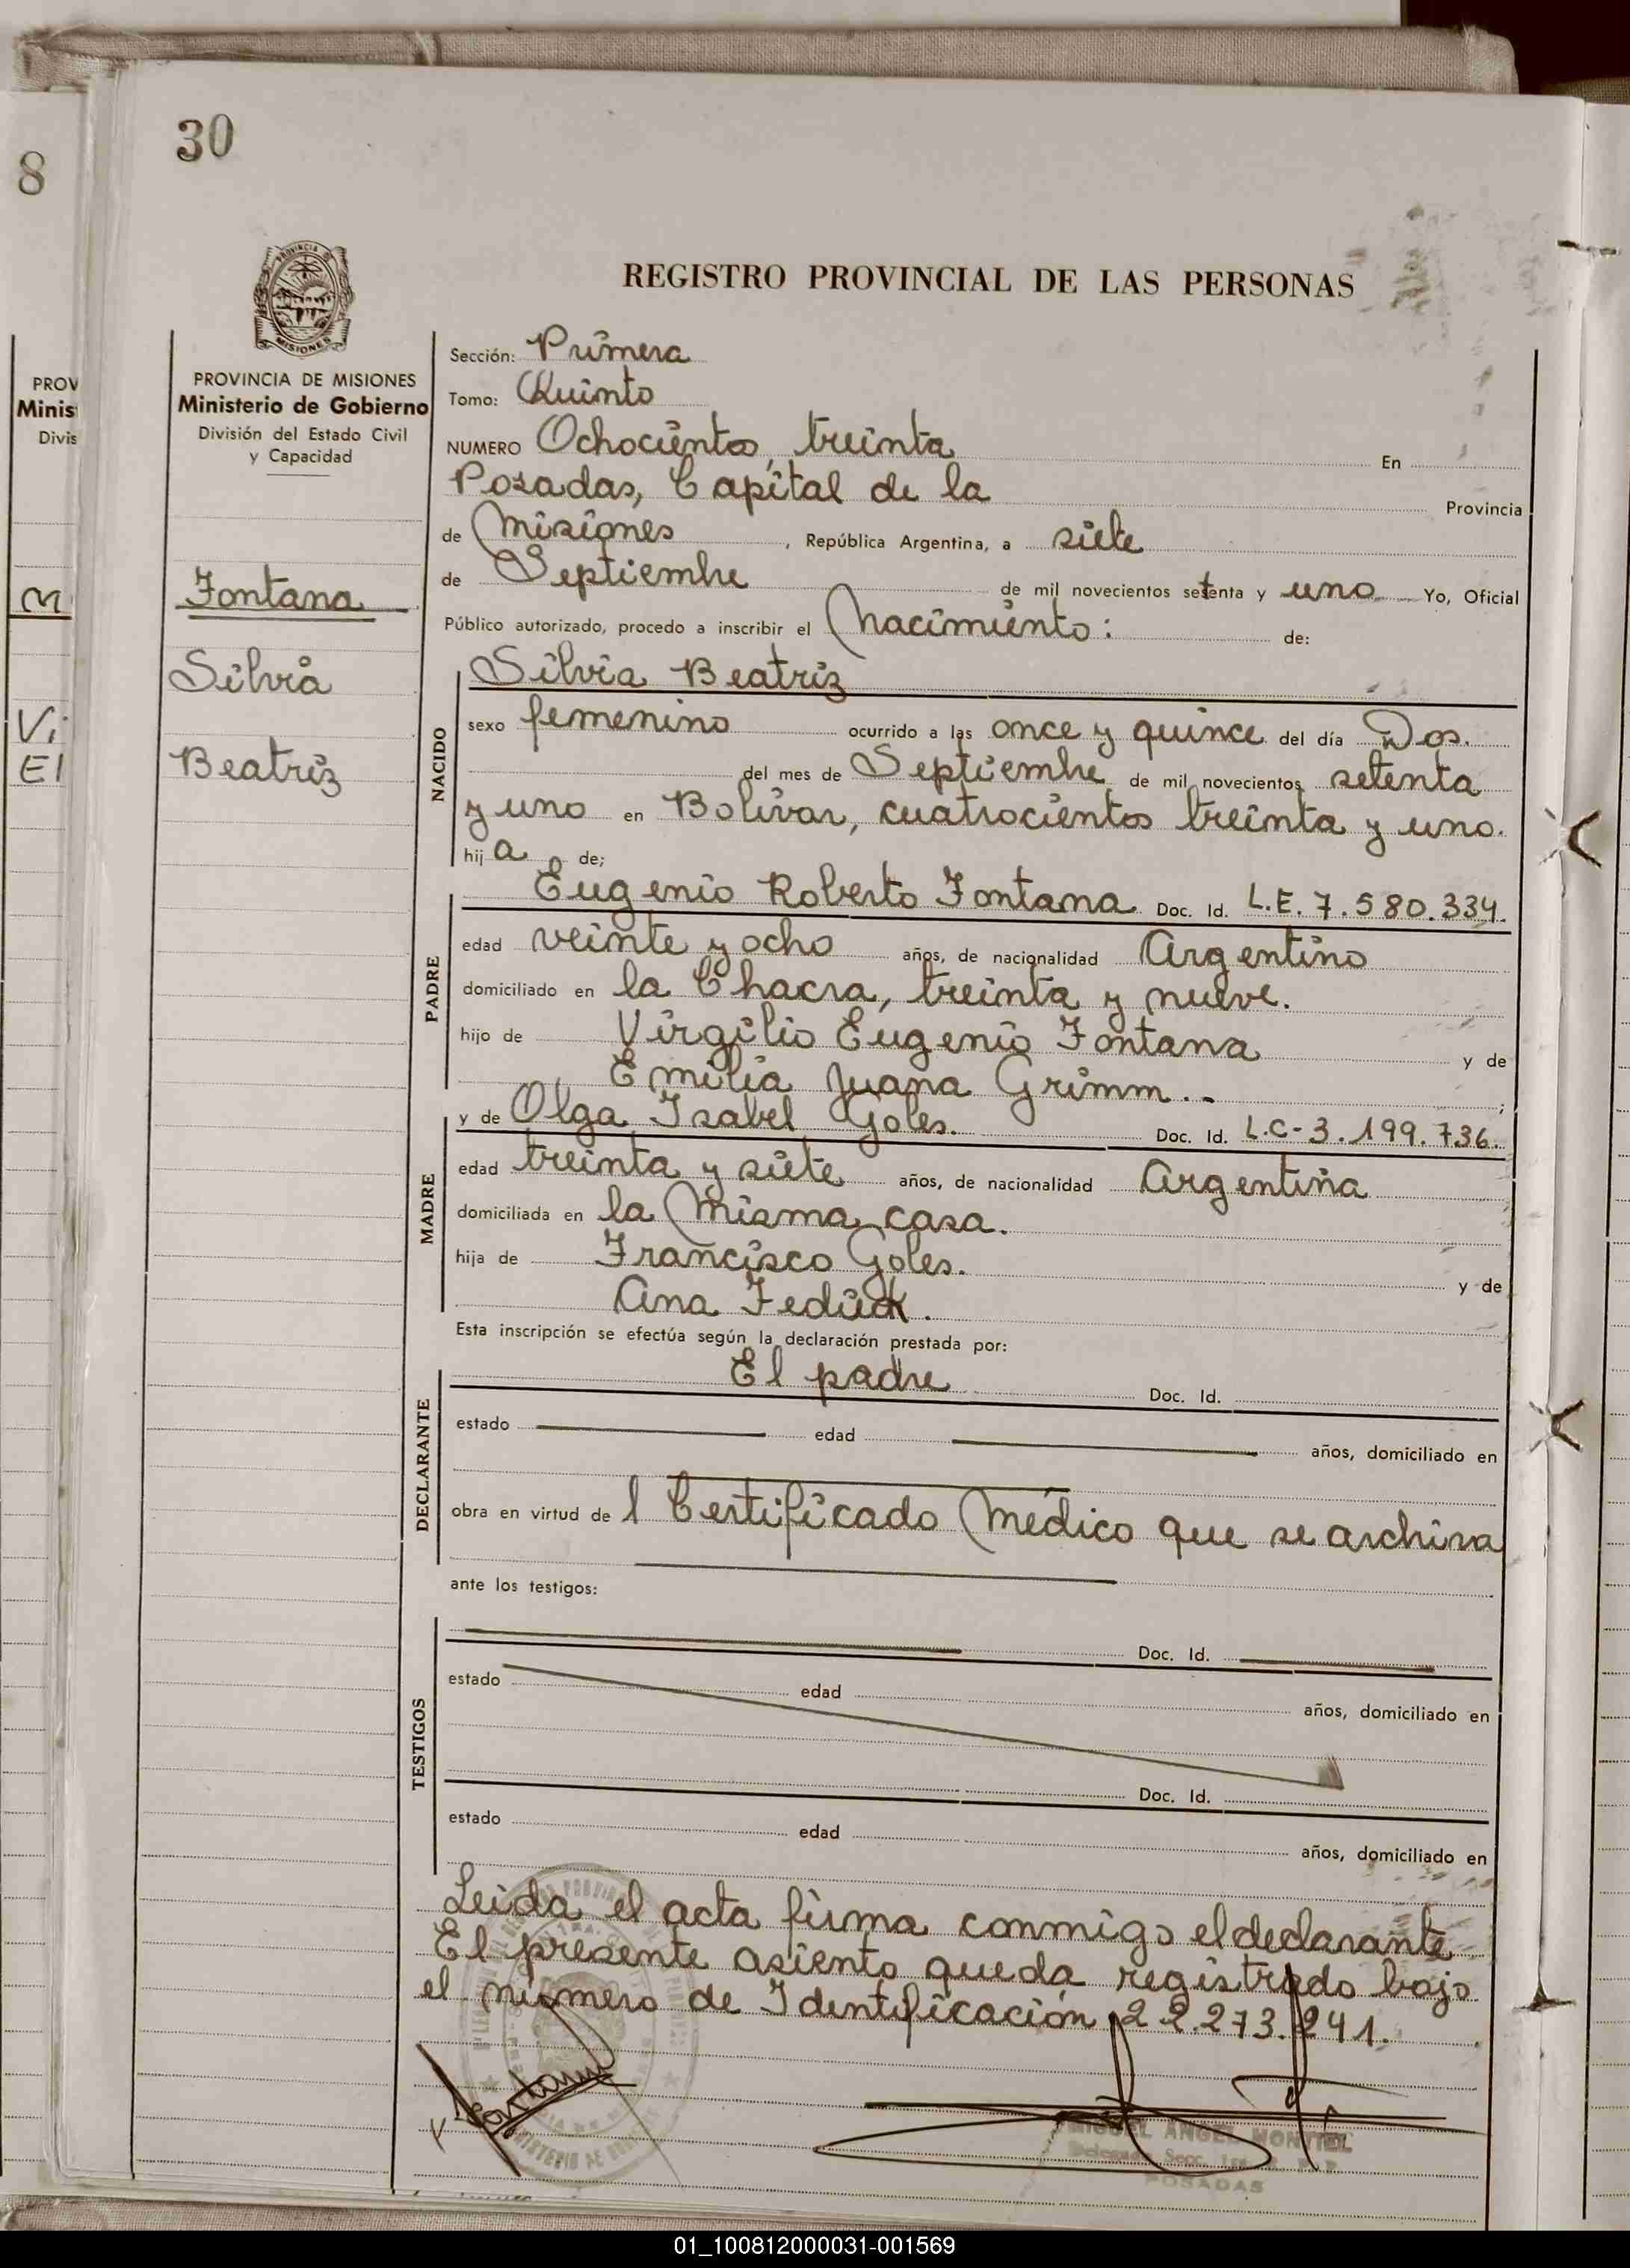 30
8
REGISTRO PROVINCIAL DE LAS PERSONAS
PROVINCIA
MISIONES
PROVINCIA DE MISIONES
Ministerio de Gobierno
División del Estado Civil
y Capacidad
PROV
Minis
Divis
M
Vi
El
Fontana
Silvia
Beatriz
Sección: Primera
Tomo: Quinto
NUMERO Ochocientos, treinta En
Posadas, Capital de la Provincia
de Misiones, República Argentina, a siete
de Septiembre de mil novecientos setenta y uno Yo, Oficial
Público autorizado, procedo a inscribir el Nacimiento: de:
NACIDO
Silvia Beatriz
sexo femenino ocurrido a las once y quince del día Dos.
del mes de Septiembre de mil novecientos setenta
y uno en Bolívar, cuatrocientos treinta y uno.
hij a de;
PADRE
Eugenio Roberto Fontana Doc. Id. L.E. 7.580.334.
edad veinte y ocho años, de nacionalidad Argentino
domiciliado en la Chacra, treinta y nueve.
hijo de Virgilio Eugenio Fontana y de
Emilia Juana Grimm.. ;
MADRE
y de Olga Isabel Goles. Doc. Id. L.C-3.199.736.
edad treinta y siete años, de nacionalidad Argentina
domiciliada en la Misma casa.
hija de Francisco Goles. y de
Ana Fediuk.
Esta inscripción se efectúa según la declaración prestada por:
DECLARANTE
El padre Doc. Id.
estado edad años, domiciliado en
obra en virtud de l Certificado Médico que se archiva
ante los testigos:
TESTIGOS
Doc. Id.
estado edad años, domiciliado en
Doc. Id.
estado edad años, domiciliado en
Leida el acta firma conmigo el declarante
El presente asiento queda registrado bajo
el número de Identificación 22.273.241.
Fontana
MIGUEL ANGEL MONTIEL
POSADAS
01_100812000031-001569